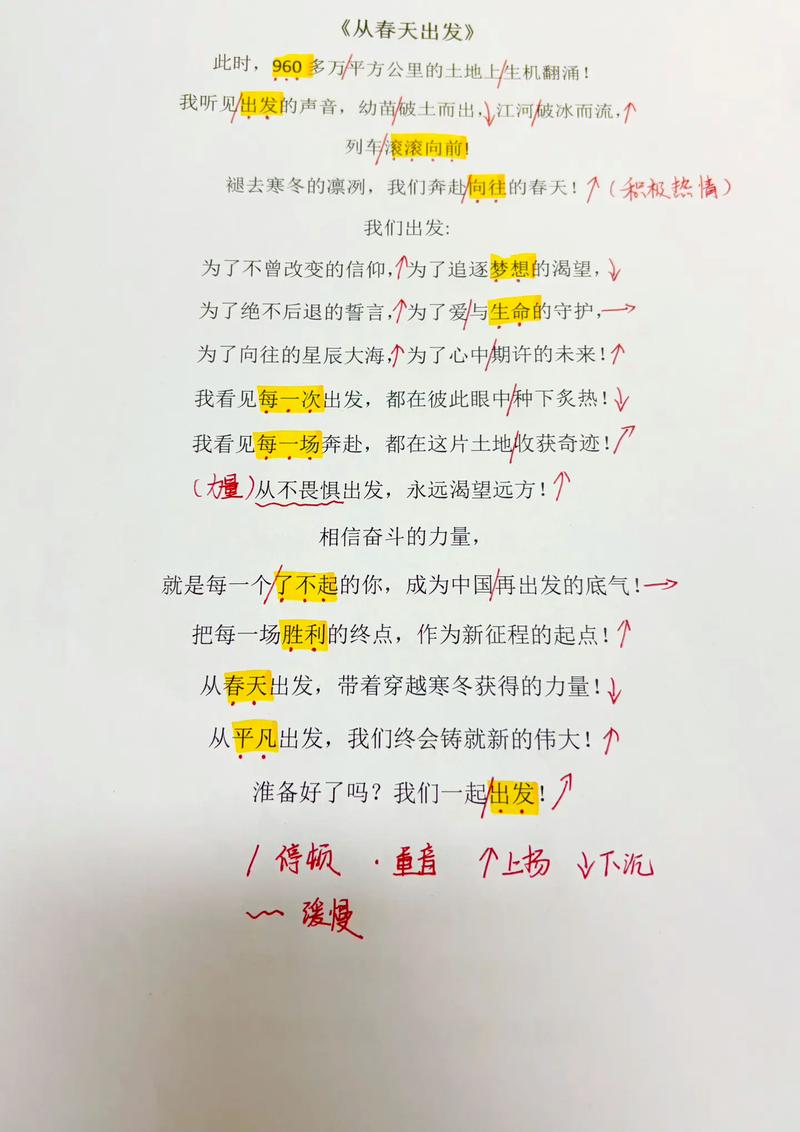 《从春天出发》
此时，960多万/平方公里的土地上/生机翻涌！
我听见/出发的声音，幼苗/破土而出，↓江河/破冰而流，↑
列车/滚滚向前！
褪去寒冬的凛冽，我们奔赴/向往的春天！↑（积极热情）
我们出发：
为了不曾改变的信仰，↑为了追逐梦想的渴望，↓
为了绝不后退的誓言，↑为了爱/与生命的守护，→
为了向往的星辰大海，↑为了心中/期许的未来！↑
我看见每一次出发，都在彼此眼中/种下炙热！↓
我看见每一场奔赴，都在这片土地/收获奇迹！↗
（力量）从不畏惧出发，永远渴望远方！↑
相信奋斗的力量，
就是每一个/了不起的你，成为中国/再出发的底气！→
把每一场胜利的终点，作为新征程的起点！↑
从春天出发，带着穿越寒冬获得的力量！↓
从平凡出发，我们终会铸就新的伟大！↑
准备好了吗？我们一起/出发！↗
/ 停顿 · 重音 ↑上扬 ↓下沉
﹏ 缓慢